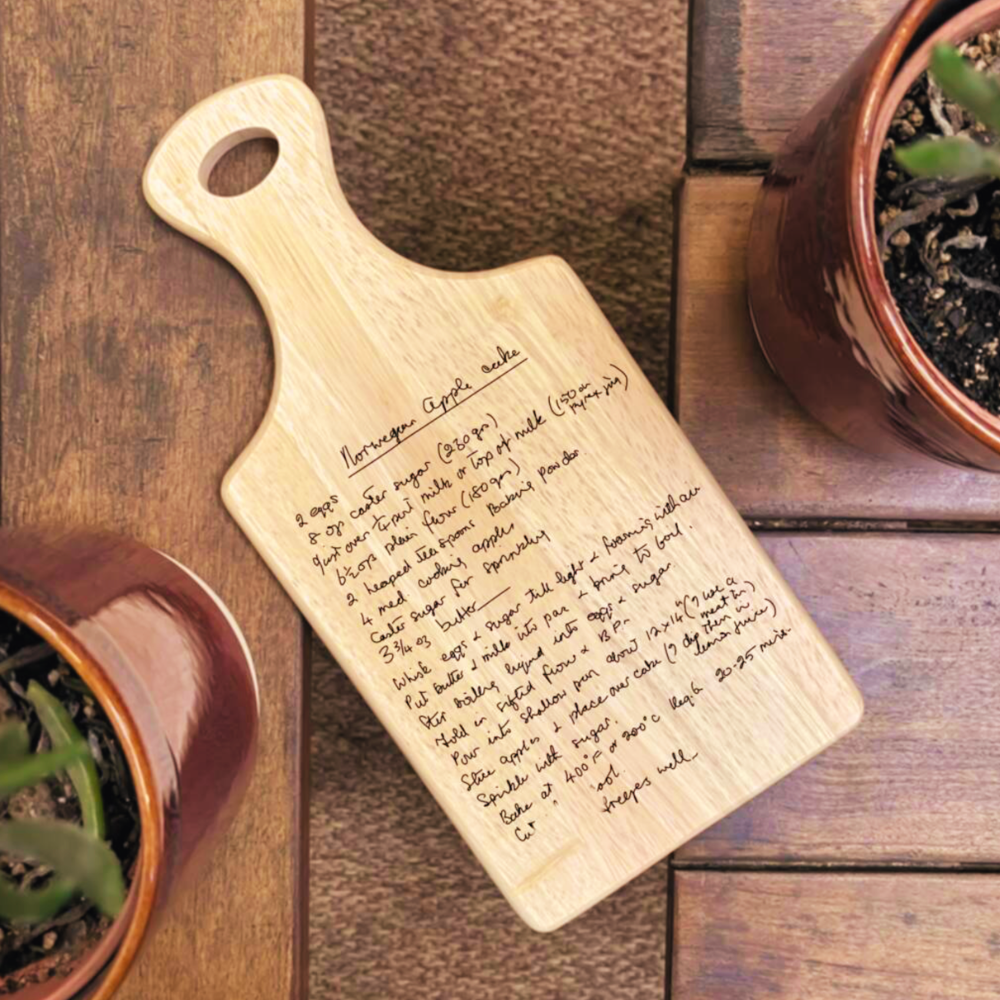 Norwegian Apple cake
2 eggs
8 ozs caster sugar (230 gr)
Just over ¼ pint milk or top of milk (150 in pyrex jug)
6½ ozs plain flour (180 gm)
2 heaped teaspoons Baking Powder
4 med cooking apples
Caster sugar for sprinkling
3¾ oz butter
Whisk eggs & sugar till light & foaming
Put butter & milk into pan & bring to boil.
Stir boiling liquid into eggs & sugar
Fold in sifted flour & B.P.
Pour into shallow pan about 12x14" (? use a meat tin)
Slice apples & place over cake (? dip them in lemon juice)
Sprinkle with sugar.
Bake at 400°F or 200°C Reg. 6 20-25 mins.
Cut
freezes well